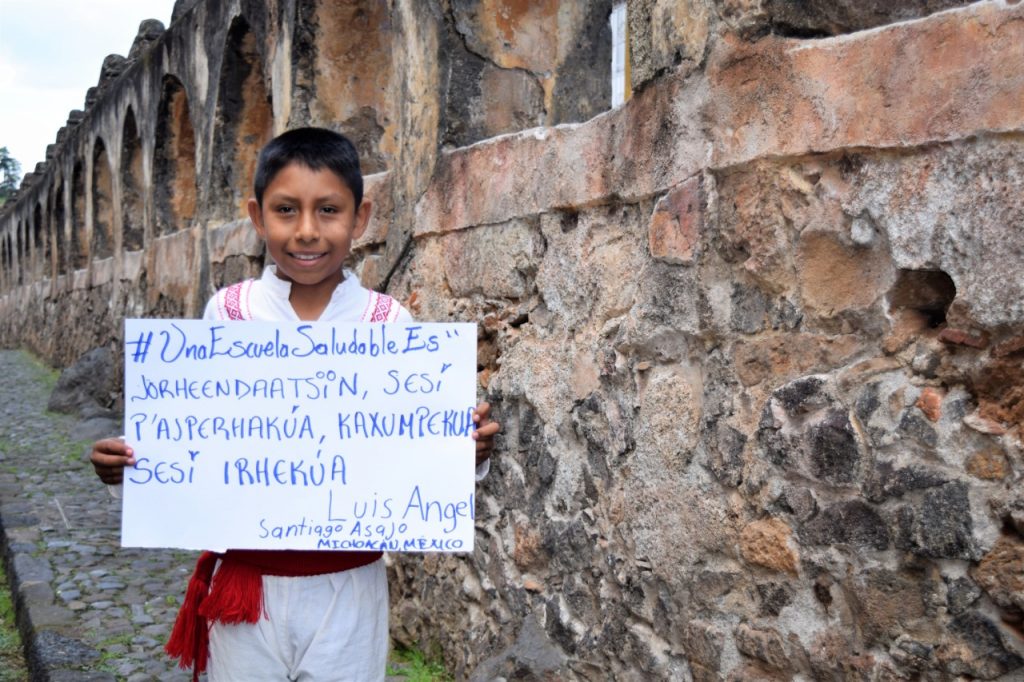 #UnaEscuelaSaludableEs"
JORHEENDAATSÏIN, SESÍ
P'AJPERHAKÚA, KAXUMPEKUA
SESÍ IRHEKÚA
Luis Angel
Santiago Asajo
MICHOACÁN, MÉXICO